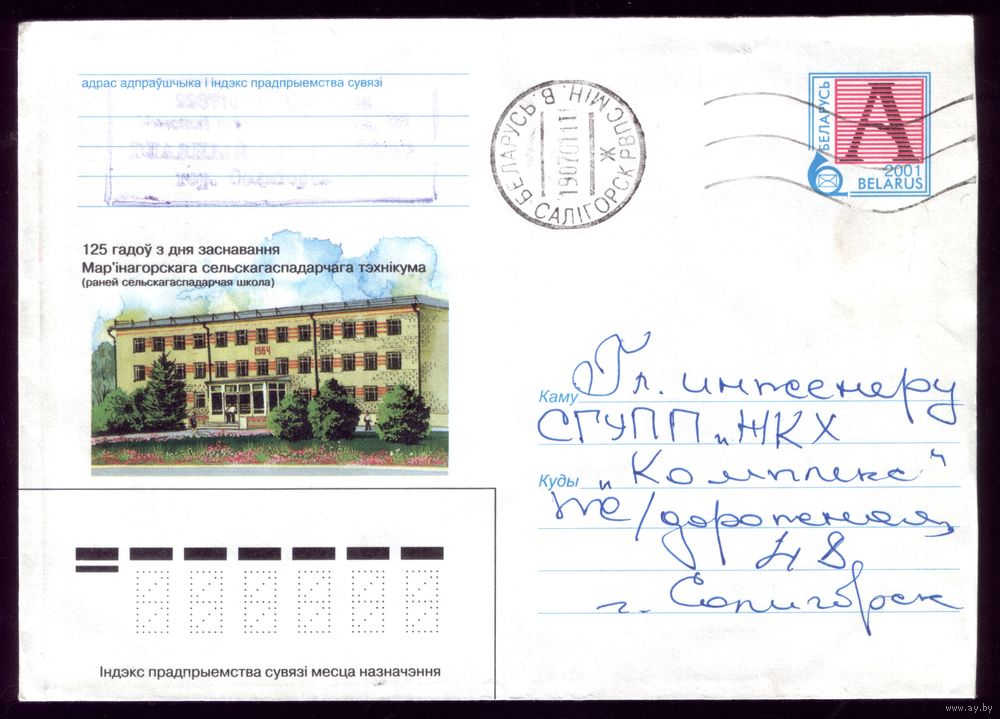 адрас адпраўшчыка і індэкс прадпрыемства сувязі
БЕЛАРУСЬ. В. МІН.
190701 11
САЛІГОРСК РВПС
Ж
БЕЛАРУСЬ
А
2001
BELARUS
125 гадоў з дня заснавання
Мар'інагорскага сельскагаспадарчага тэхнікума
(раней сельскагаспадарчая школа)
1964
Каму Гл. инженеру
СГУПП "ЖКХ
Куды "Комплекс"
же/дорожная,
48
г. Солигорск
Індэкс прадпрыемства сувязі месца назначэння
www.ay.by